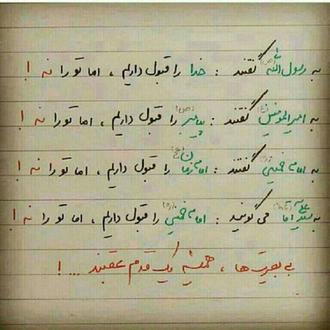 به رسول الله (ص) گفتند : خدا را قبول داریم ، اما تو را نه !
به امیرالمؤمنین (ع) گفتند : پیامبر (ص) را قبول داریم ، اما تو را نه !
به امام خمینی (ره) گفتند : امام زمان (عج) را قبول داریم ، اما تو را نه !
به سید علی آقا می گویند : امام خمینی (ره) را قبول داریم ، اما تو را نه !
بی بصیرت ها ، همیشه یک قدم عقبند ... !